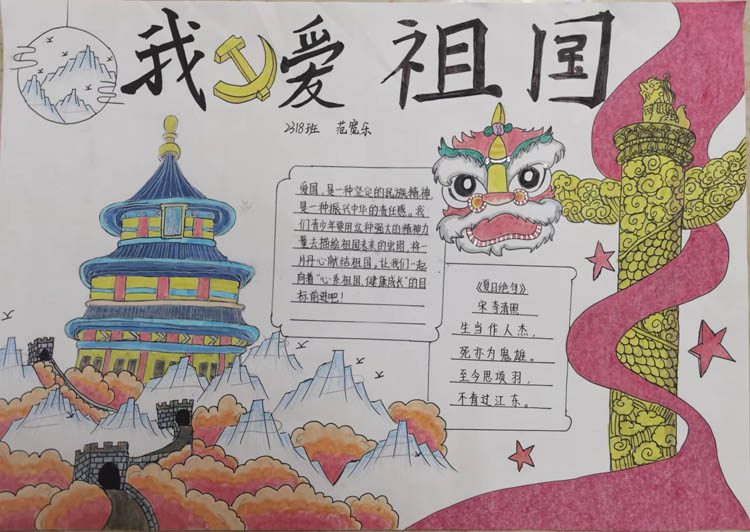 我爱祖国
2318班 范宽乐
爱国，是一种坚定的民族精神
是一种振兴中华的责任感。我
们青少年要用这种强大的精神力
量去描绘祖国未来的宏图，将一
片丹心献给祖国。让我们一起
向着“心系祖国，健康成长”的目
标前进吧！
《夏日绝句》
宋 李清照
生当作人杰，
死亦为鬼雄。
至今思项羽，
不肯过江东。